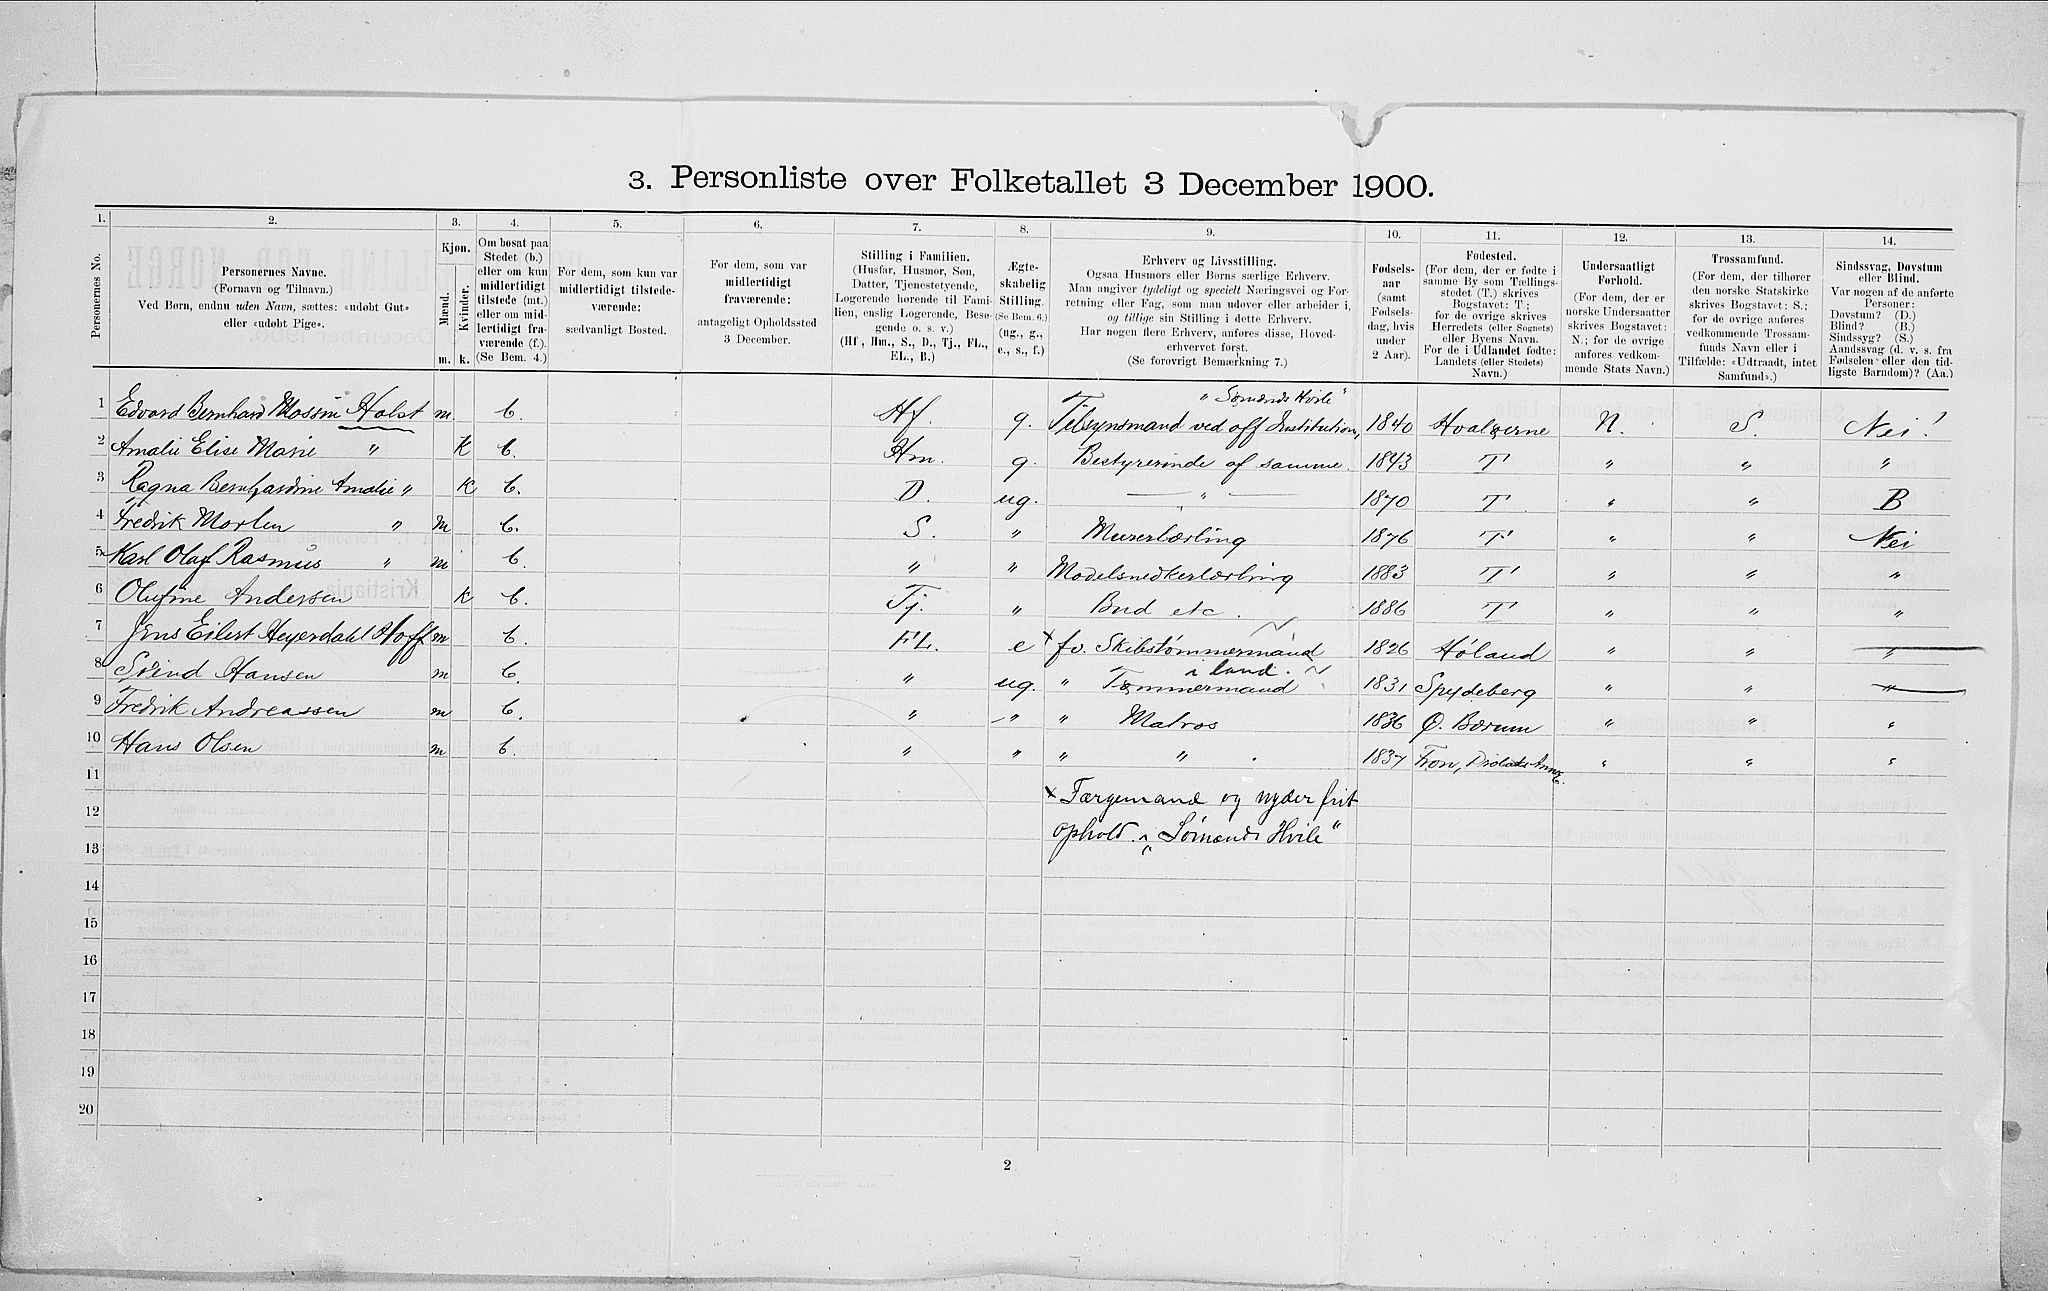 3. Personliste over Folketallet 3 December 1900.
1. 2. 3. 4. 5. 6. 7. 8. 9. 10. 11. 12. 13. 14.
Personernes No.
Personernes Navne.
(Fornavn og Tilnavn.)
Ved Børn, endnu uden Navn, sættes: «udøbt Gut»
eller «udøbt Pige».
Kjøn.
Mænd.
Kvinder.
m. k.
Om bosat paa
Stedet (b.)
eller om kun
midlertidigt
tilstede (mt.)
eller om mid-
lertidigt fra-
værende (f.).
(Se Bem. 4.)
For dem, som kun var
midlertidigt tilstede-
værende:
sædvanligt Bosted.
For dem, som var
midlertidigt
fraværende:
antageligt Opholdssted
3 December.
Stilling i Familien.
(Husfar, Husmor, Søn,
Datter, Tjenestetyende,
Logerende hørende til Fami-
lien, enslig Logerende, Besø-
gende o. s. v.)
(Hf, Hm., S., D., Tj., FL.,
EL., B.)
Ægte-
skabelig
Stilling.
(Se Bem. 6.)
(ug., g.,
e., s., f.)
Erhverv og Livsstilling.
Ogsaa Husmors eller Børns særlige Erhverv.
Man angiver tydeligt og specielt Næringsvei og For-
retning eller Fag, som man udøver eller arbeider i,
og tillige sin Stilling i dette Erhverv.
Har nogen flere Erhverv, anføres disse, Hoved-
erhvervet først.
(Se forøvrigt Bemærkning 7.)
Fødsels-
aar
(samt
Fødsels-
dag, hvis
under
2 Aar).
Fødested.
(For dem, der er fødte i
samme By som Tællings-
stedet (T.) skrives
Bogstavet: T;
for de øvrige skrives
Herredets (eller Sognets)
eller Byens Navn.
For de i Udlandet fødte:
Landets (eller Stedets)
Navn.)
Undersaatligt
Forhold.
(For dem, der er
norske Undersaatter
skrives Bogstavet:
N.; for de øvrige
anføres vedkom-
mende Stats Navn.)
Trossamfund.
(For dem, der tilhører
den norske Statskirke
skrives Bogstavet: S.;
for de øvrige anføres
vedkommende Trossam-
funds Navn eller i
Tilfælde: «Udtraadt, intet
Samfund».)
Sindssvag, Døvstum
eller Blind.
Var nogen af de anførte
Personer:
Døvstum? (D.)
Blind? (B.)
Sindssyg? (S.)
Aandssvag (d. v. s. fra
Fødselen eller den tid-
ligste Barndom)? (Aa.)
„ Sømands Hvile"
1 Edvard Bernhard Holst m. b. Hf. g. Tilsynsmand ved off Institution, 1840 Hvaløerne N. S. Nei!
2 Amalie Elise Marie " K b. Hm. g. Bestyrerinde af samme. 1843 T " " "
3 Ragna Bernhardine Amalie " K b. D. ug. — " — 1870 T " " B
4 Fredrik Morten " m b. S. " Murerlærling 1876 T " " Nei
5 Karl Olaf Rasmus " m b. " " Modelsnedkerlærling 1883 T " " "
6 Olufine Andersen K b. Tj. " Bud etc. 1886 T " " "
7 Jens Eilert Heyerdahl Hoff m b. FL. e x fv. Skibstømmermand 1826 Høland " " "
i land.
8 Svend Hansen m b. " ug. " Tømmermand 1831 Spydeberg " " "
9 Fredrik Andreassen m b. " " " Matros 1836 Ø. Bærum " " "
10 Hans Olsen m b. " " " " 1837 Fron, " " "
11
x Færgemand og nyder frit
12
ophold. i „Sømands Hvile"
13
14
15
16
17
18
19
20
2